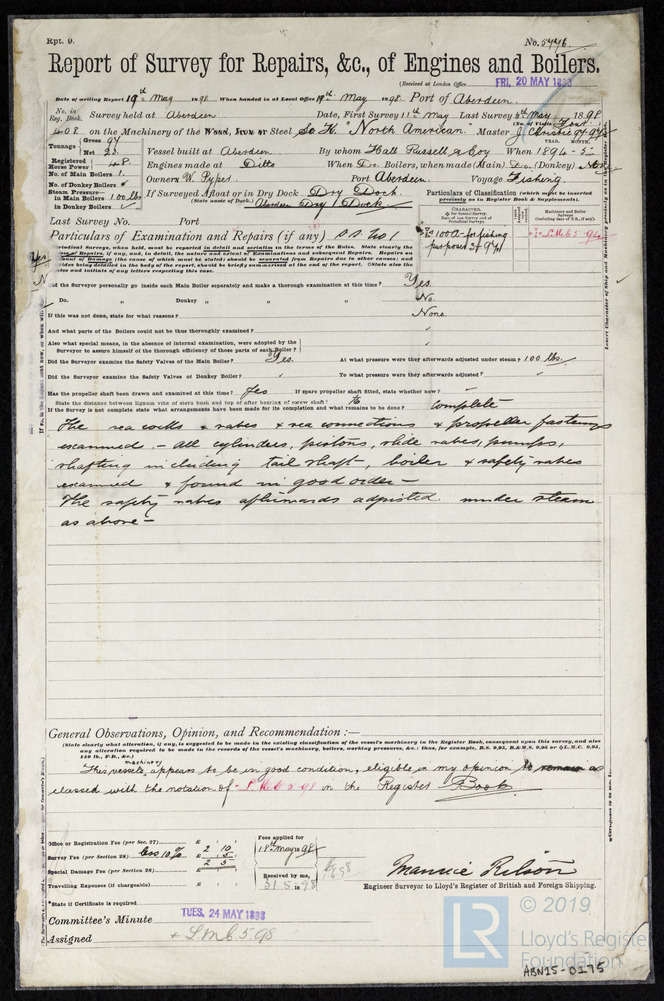 Rpt. 9.
No. 5776
Report of Survey for Repairs, &c., of Engines and Boilers.
(Received at London Office FRI. 20 MAY 1898
Date of writing Report 19th May 1898 When handed in at Local Office 19th May 1898 Port of Aberdeen.
No. in Reg. Book. Survey held at Aberdeen Date, First Survey 11th May Last Survey May 1898
(No. of Visits
408 on the Machinery of the Wood, Iron or Steel "North American. Master J. Christie
YEAR. MONTH.
Tonnage Gross 97 Net 23 Vessel built at Aberdeen By whom Hall Russell & Coy When 1894-5
Registered Horse Power 48 Engines made at Ditto When Do. Boilers, when made (Main) Do. (Donkey)
No. of Main Boilers 1.
No. of Donkey Boilers Owners W. Pyper. Port Aberdeen. Voyage Fishing
Steam Pressure in Main Boilers 100 lbs
in Donkey Boilers If Surveyed Afloat or in Dry Dock Dry Dock.
(State name of Dock.) Aberdeen Dry Dock
Particulars of Classification (which must be inserted precisely as in Register Book & Supplements).
CHARACTER.
Machinery and Boiler Surveys
Last Survey No. Port
Particulars of Examination and Repairs (if any)
100A. for fishing purposes
Did the Surveyor personally go inside each Main Boiler separately and make a thorough examination at this time? Yes.
Do. " Donkey " " " " " No.
If this was not done, state for what reasons? None.
And what parts of the Boilers could not be thoroughly examined? "
Also what special means, in the absence of internal examination, were adopted by the Surveyor to assure himself of the thorough efficiency of those parts of each Boiler? "
Did the Surveyor examine the Safety Valves of the Main Boiler? Yes. At what pressure were they afterwards adjusted under steam? 100 lbs.
Did the Surveyor examine the Safety Valves of Donkey Boiler? To what pressure were they afterwards adjusted? "
Has the propeller shaft been drawn and examined at this time? Yes If spare propeller shaft fitted, state whether new? -
State the distance between lignum vitæ of stern bush and top of after bearing of screw shaft?
If the Survey is not complete state what arrangements have been made for its completion and what remains to be done? complete
The sea cocks & valves & sea connections & propeller fastenings
examined. - All cylinders, pistons, slide valves, pumps,
shafting including tail shaft, boiler & safety valves
examined & found in good order -
The safety valves afterwards adjusted under steam
as above -
General Observations, Opinion, and Recommendation :-
(State clearly what alteration, if any, is suggested to be made in the existing classification of the vessel's machinery in the Register Book, consequent upon this survey, and also any alteration required to be made in the records of the vessel's machinery, boilers, working pressures, &c.: thus, for example, B.S. 9,95, B.&M.S. 9,95 or L.M.C. 9,95, 140 lb., F.D., &c.)
machinery
This vessels appears to be in good condition, eligible in my opinion to remain as
classed with the notation of L.M.C 5.98 in the Register Book.
Office or Registration Fee (per Sec. 27) £ 2 10
Survey Fee (per Section 28) less 10% £ 5
£ 2 5
Special Damage Fee (per Section 28) £
Travelling Expenses (if chargeable) £
Fees applied for
18th May 1898
Received by me,
31.5.1898
Engineer Surveyor to Lloyd's Register of British and Foreign Shipping.
*State if Certificate is required.
Committee's Minute TUES. 24 MAY 1898
Assigned + LMC 5.98
© 2019
LR
Lloyd's Register
Foundation
ABN25-0175